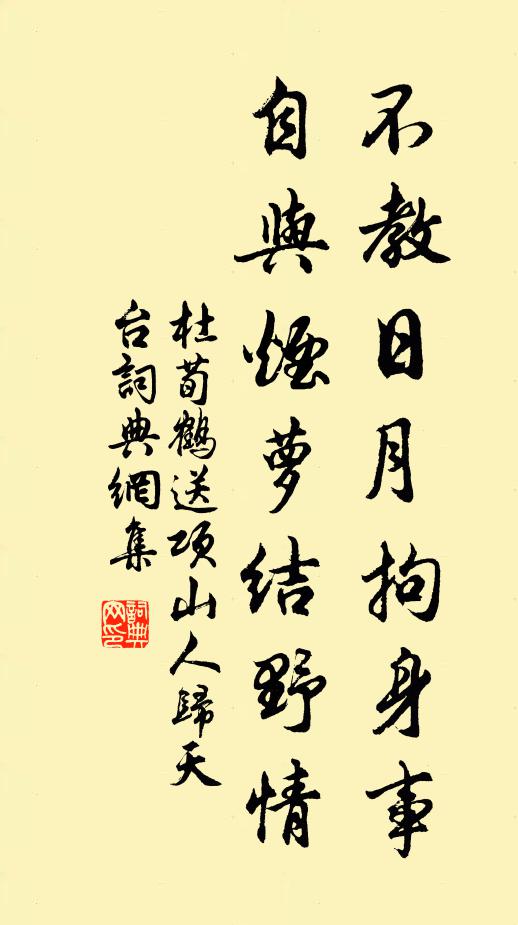 不教日月拘身事
自與煙蘿結野情
杜荀鶴送項山人歸天
台詞典網集
詞典网印